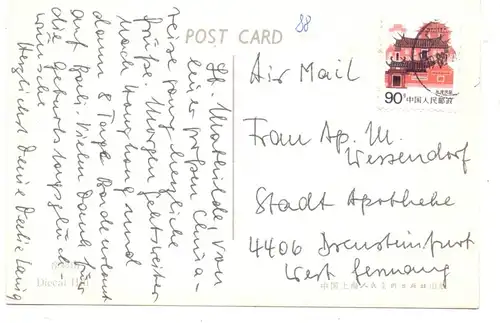 88
POST CARD
Lb. Mathilde, von
einer großen China-
reise ganz herzliche
Grüße. Morgen geht's weiter
nach Hongkong und
dann 8 Tage Badeurlaub
auf Bali. Vielen Dank für
die Geburtstagsglück-
wünsche
Herzlichst Deine
Air Mail
Frau Ap. M.
Wessendorf
Stadt Apotheke
4406 Drensteinfurt
West Germany
90分
中国人民邮政
Diecai Hill
中国上海人民美术出版社出版